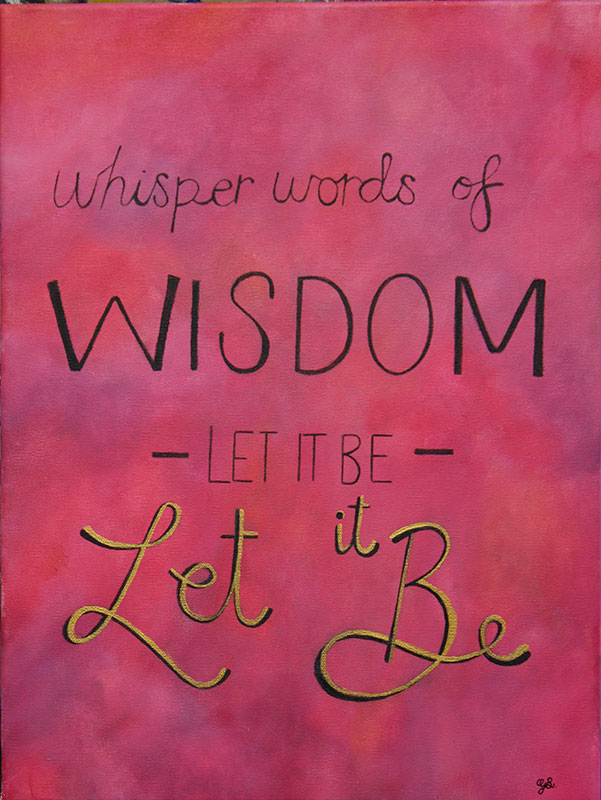 whisper words of
WISDOM
- LET IT BE -
Let it Be